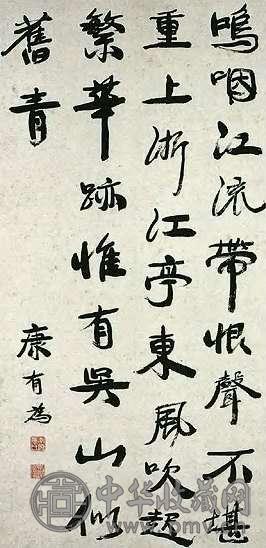 嗚咽江流帶恨聲不堪
重上浙江亭東風吹起
繁華跡惟有吳山似
舊青
康有為
中华收藏网